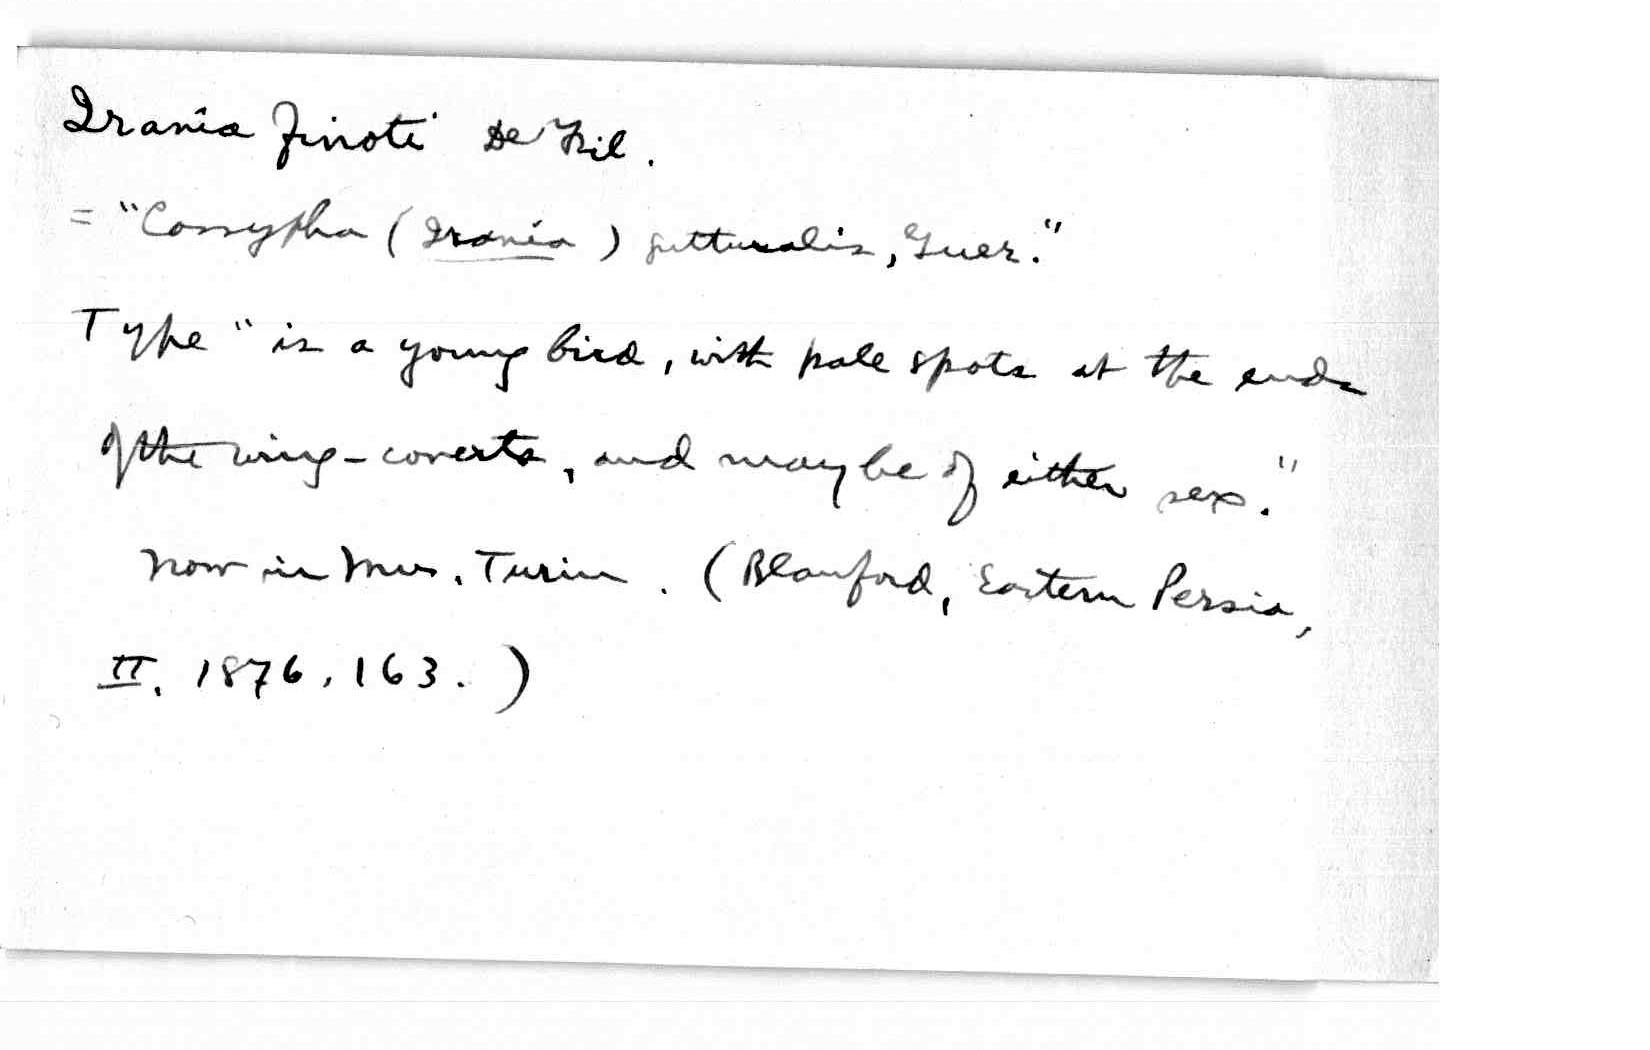 Irania finoti De Fil.
= "Cossypha (Irania) gutturalis, Guer."
Type "is a young bird, with pale spots at the ends
of the wing-coverts, and may be of either sex."
Now in Mus. Turin. (Blanford, Eastern Persia,
II. 1876, 163.)